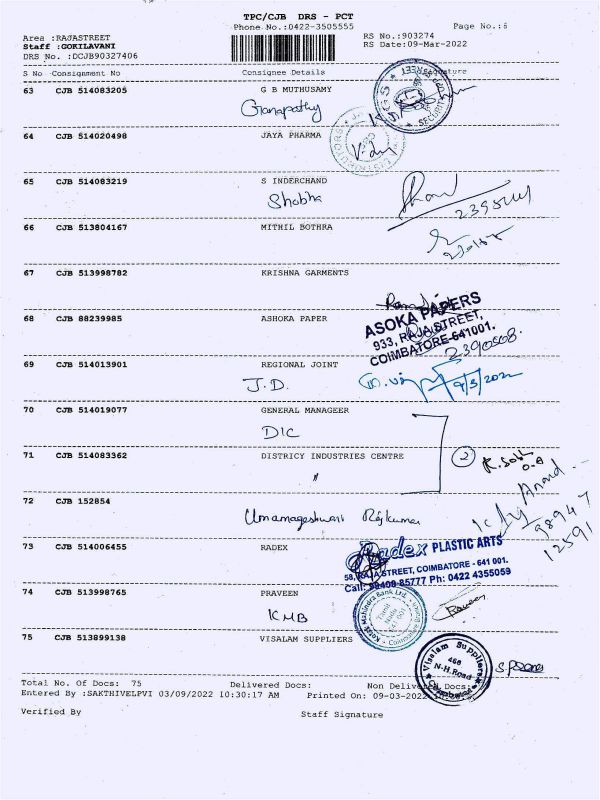 TPC/CJB DRS - PCT
Phone No.:0422-3505555 Page No.:6
Area :RAJASTREET RS No.:903274
Staff :GOKILAVANI RS Date:09-Mar-2022
DRS No. :DCJB90327406
S No Consignment No Consignee Details Signature
63 CJB 514083205 G B MUTHUSAMY
Ganapathy
64 CJB 514020498 JAYA PHARMA
65 CJB 514083219 S INDERCHAND
Shobha
66 CJB 513804167 MITHIL BOTHRA
67 CJB 513998782 KRISHNA GARMENTS
68 CJB 88239985 ASHOKA PAPER
ASOKA PAPERS
933, RAJA STREET,
COIMBATORE-641001.
2390508.
69 CJB 514013901 REGIONAL JOINT
J.D. 9/3/2022
70 CJB 514019077 GENERAL MANAGEER
DIC
71 CJB 514083362 DISTRICY INDUSTRIES CENTRE
〃 2
72 CJB 152854
Umamageshwari Rajkumar
Anand
98947
12591
73 CJB 514006455 RADEX
Radex PLASTIC ARTS
58, RAJA STREET, COIMBATORE - 641 001.
Call: 98408-85777 Ph: 0422 4355059
74 CJB 513998765 PRAVEEN
KMB
Kotak Mahindra Bank Ltd.
Tamil Nadu
641 001
Coimbatore
75 CJB 513899138 VISALAM SUPPLIERS
Visalam Suppliers
468
N-H.Road
Coimbatore
Total No. Of Docs: 75 Delivered Docs: Non Delivered Docs:
Entered By :SAKTHIVELPVI 03/09/2022 10:30:17 AM Printed On: 09-03-2022
Verified By Staff Signature